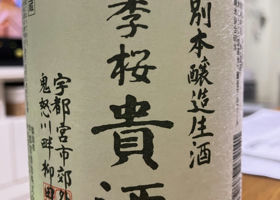 別本醸造生酒
季桜貴酒
宇都宮市郊外
鬼怒川畔柳田